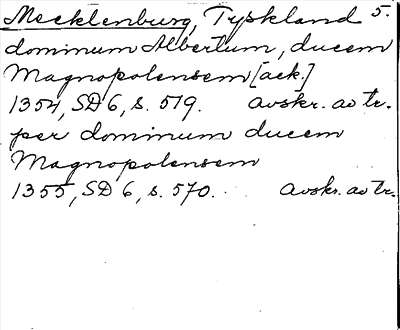 Mecklenburg, Tyskland 5.
dominum Albertum, ducem
Magnopolensem [ack.]
1354, SD 6, s. 519. Avskr. av tr.
per dominum ducem
Magnopolensem
1355, SD 6, s. 570. Avskr. av tr.